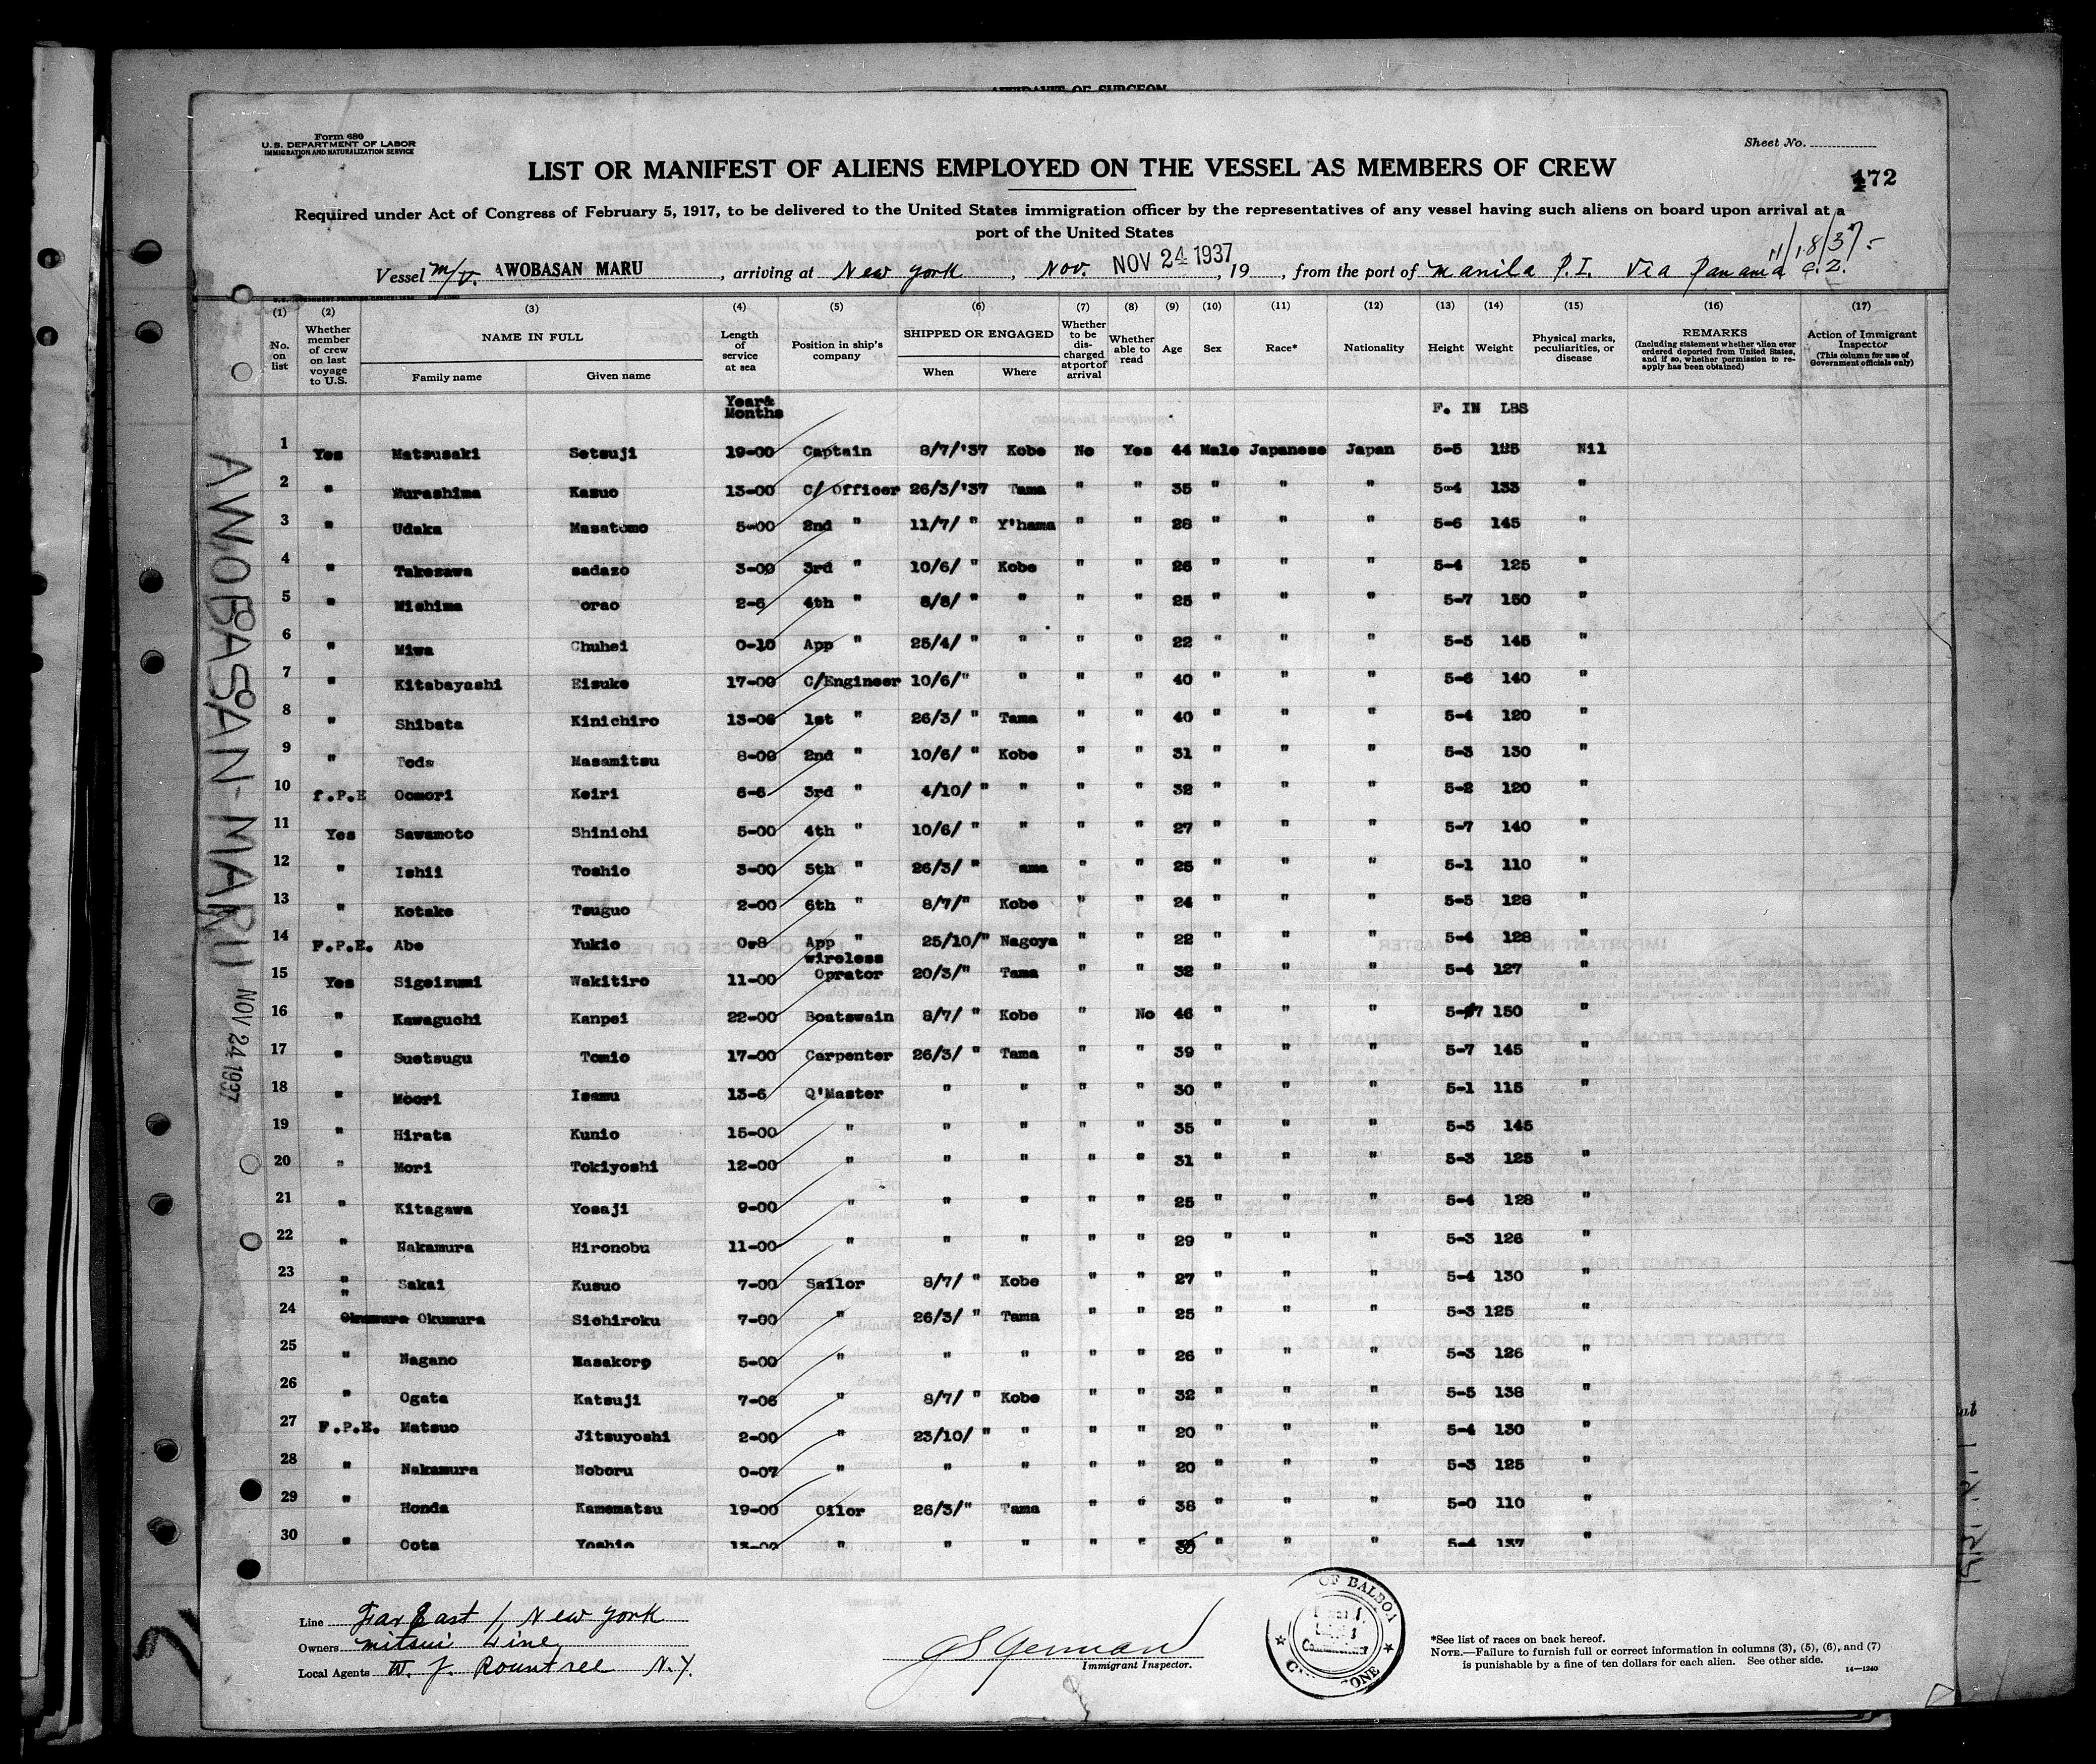 AFFIDAVIT OF SURGEON
Form 680
U.S. DEPARTMENT OF LABOR
IMMIGRATION AND NATURALIZATION SERVICE
Sheet No.
LIST OR MANIFEST OF ALIENS EMPLOYED ON THE VESSEL AS MEMBERS OF CREW
172
Required under Act of Congress of February 5, 1917, to be delivered to the United States immigration officer by the representatives of any vessel having such aliens on board upon arrival at a
port of the United States
11/18/37
Vessel M/V. AWOBASAN MARU, arriving at New York, Nov. NOV 24 1937, 19 , from the port of Manila P.I. Via Panama C.Z.
(1) (2) (3) (4) (5) (6) (7) (8) (9) (10) (11) (12) (13) (14) (15) (16) (17)
No. on list
Whether member of crew on last voyage to U.S.
NAME IN FULL
Family name Given name
Length of service at sea
Position in ship's company
SHIPPED OR ENGAGED
When Where
Whether to be discharged at port of arrival
Whether able to read
Age Sex Race* Nationality Height Weight
Physical marks, peculiarities, or disease
REMARKS
(Including statement whether alien ever ordered deported from United States, and if so, whether permission to reapply has been obtained)
Action of Immigrant Inspector
(This column for use of Government officials only)
Year& Months F. IN LBS
1 Yes Matsusaki Setsuji 19-00 Captain 8/7/'37 Kobe No Yes 44 Male Japanese Japan 5-5 125 Nil
2 " Murashima Kazuo 13-00 C/ Officer 26/3/'37 Tama " " 35 " " " 5-4 133 "
3 " Udaka Masatomo 5-00 2nd " 11/7/ " Y'hama " " 28 " " " 5-6 145 "
4 " Takezawa sadazo 3-00 3rd " 10/6/ " Kobe " " 26 " " " 5-4 125 "
5 " Mishima orao 2-6 4th " 8/8/ " " " " 25 " " " 5-7 150 "
6 " Miwa Chuhei 0-10 App " 25/4/ " " " " 22 " " " 5-5 145 "
7 " Kitabayashi Eisuke 17-00 C/Engineer 10/6/" " " " 40 " " " 5-6 140 "
8 " Shibata Kinichiro 13-06 1st " 26/3/ " Tama " " 40 " " " 5-4 120 "
9 " Toda Masamitsu 8-00 2nd " 10/6/ " Kobe " " 31 " " " 5-3 130 "
10 f.P.E Oomori Keiri 6-6 3rd " 4/10/ " " " " 32 " " " 5-2 120 "
11 Yes Sawamoto Shinichi 5-00 4th " 10/6/ " " " " 27 " " " 5-7 140 "
12 " Ishii Toshio 3-00 5th " 26/3/ " ama " " 25 " " " 5-1 110 "
13 " Kotake Tsuguo 2-00 6th " 8/7/" Kobe " " 24 " " " 5-5 128 "
14 F.P.E. Abe Yukio 0-8 App " 25/10/" Nagoya " " 22 " " " 5-4 128 "
15 Yes Sigeizumi Wakitiro 11-00 wireless Oprator 20/3/" Tama " " 32 " " " 5-4 127 "
16 " Kawaguchi Kanpei 22-00 Boatswain 8/7/ " Kobe " No 46 " " " 5-7 150 "
17 " Suetsugu Tomio 17-00 Carpenter 26/3/ " Tama " " 39 " " " 5-7 145 "
18 " Moori Isamu 13-6 Q'Master " " " " 30 " " " 5-1 115 "
19 " Hirata Kunio 15-00 " " " " " 35 " " " 5-5 145 "
20 " Mori Tokiyoshi 12-00 " " " " " 31 " " " 5-3 125 "
21 " Kitagawa Yosaji 9-00 " " " " " 25 " " " 5-4 128 "
22 " Nakamura Hironobu 11-00 " " " " " 29 " " " 5-3 126 "
23 " Sakai Kusuo 7-00 Sailor 8/7/ " Kobe " " 27 " " " 5-4 130 "
24 " Okumura Okumura Sichiroku 7-00 " 26/3/ " Tama " " 25 " " " 5-3 125 "
25 " Nagano Masakoro 5-00 " " " " " 26 " " " 5-3 126 "
26 " Ogata Katsuji 7-06 " 8/7/ " Kobe " " 32 " " " 5-5 138 "
27 F.P.E. Matsuo Jitsuyoshi 2-00 " 23/10/ " " " " 20 " " " 5-4 130 "
28 " Nakamura Noboru 0-07 " " " " " 20 " " " 5-3 125 "
29 " Honda Kamematsu 19-00 Oilor 26/3/" Tama " " 38 " " " 5-0 110 "
30 " Oota Yoshio 13-00 " " " " " " " " 5-4 137 "
AWOBASAN-MARU NOV 24 1937
Line Far East / New York
Owners Mitsui Line
Local Agents W. J. Rountree N.Y.
Immigrant Inspector.
OF BALBOA
ONE
*See list of races on back hereof.
NOTE.—Failure to furnish full or correct information in columns (3), (5), (6), and (7)
is punishable by a fine of ten dollars for each alien. See other side.
14—1240